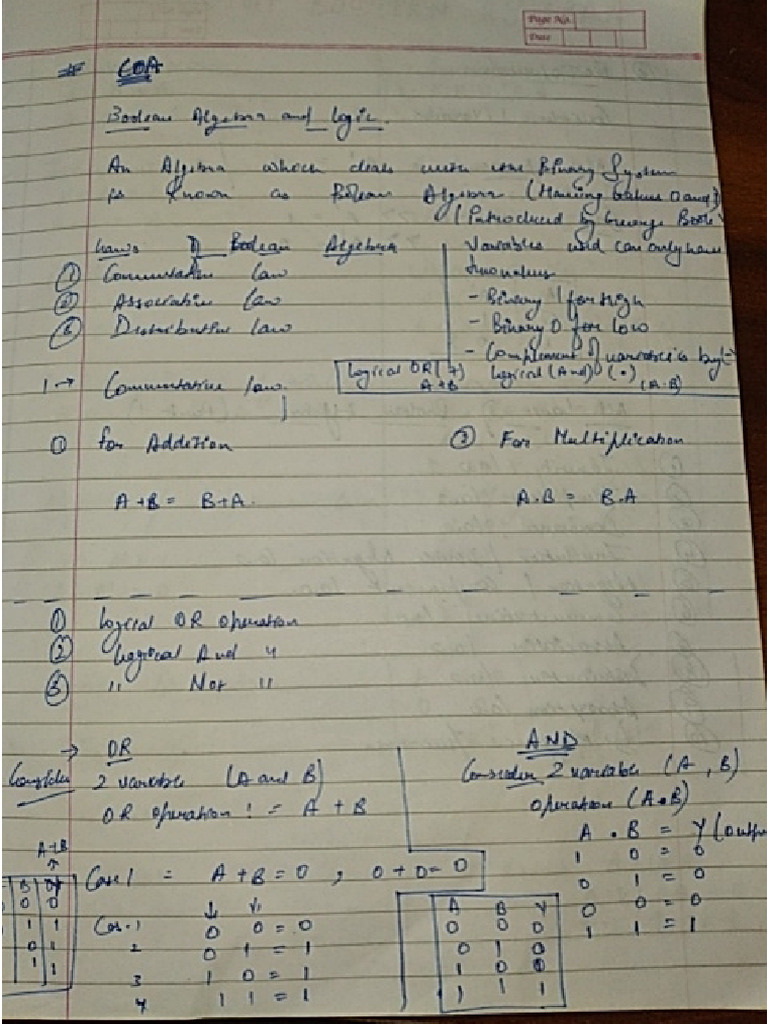 Page No.
Date
# COA
Boolean Algebra and logic.
An Algebra which deals with the Binary System
is Known as Boolean Algebra (Having values 0 and 1)
(Introduced by George Boole
Laws of Boolean Algebra
① Commutative Law
② Associative Law
③ Distributive Law
Variables used can only have
two values
- Binary 1 for High
- Binary 0 for Low
- Complement of variable is by (-
Logical OR (+) Logical (And) (•)
A+B (A.B)
1 → Commutative law.
① for Addition
A+B = B+A.
② For Multiplication
A.B = B.A
① Logical OR Operation
② Logical And "
③ " Not "
→ OR
Consider 2 variable (A and B)
OR operation := A + B
Case 1 = A+B=0, 0+0=0
Cas.1 0 0 = 0
2 0 1 = 1
3 1 0 = 1
4 1 1 = 1
A+B
B
0 0
1 1
0 1
1 1
AND
Consider 2 variable (A, B)
operation (A.B)
A . B = Y (output
1 0 = 0
0 1 = 0
0 0 = 0
1 1 = 1
A B Y
0 0 0
0 1 0
1 0 0
1 1 1